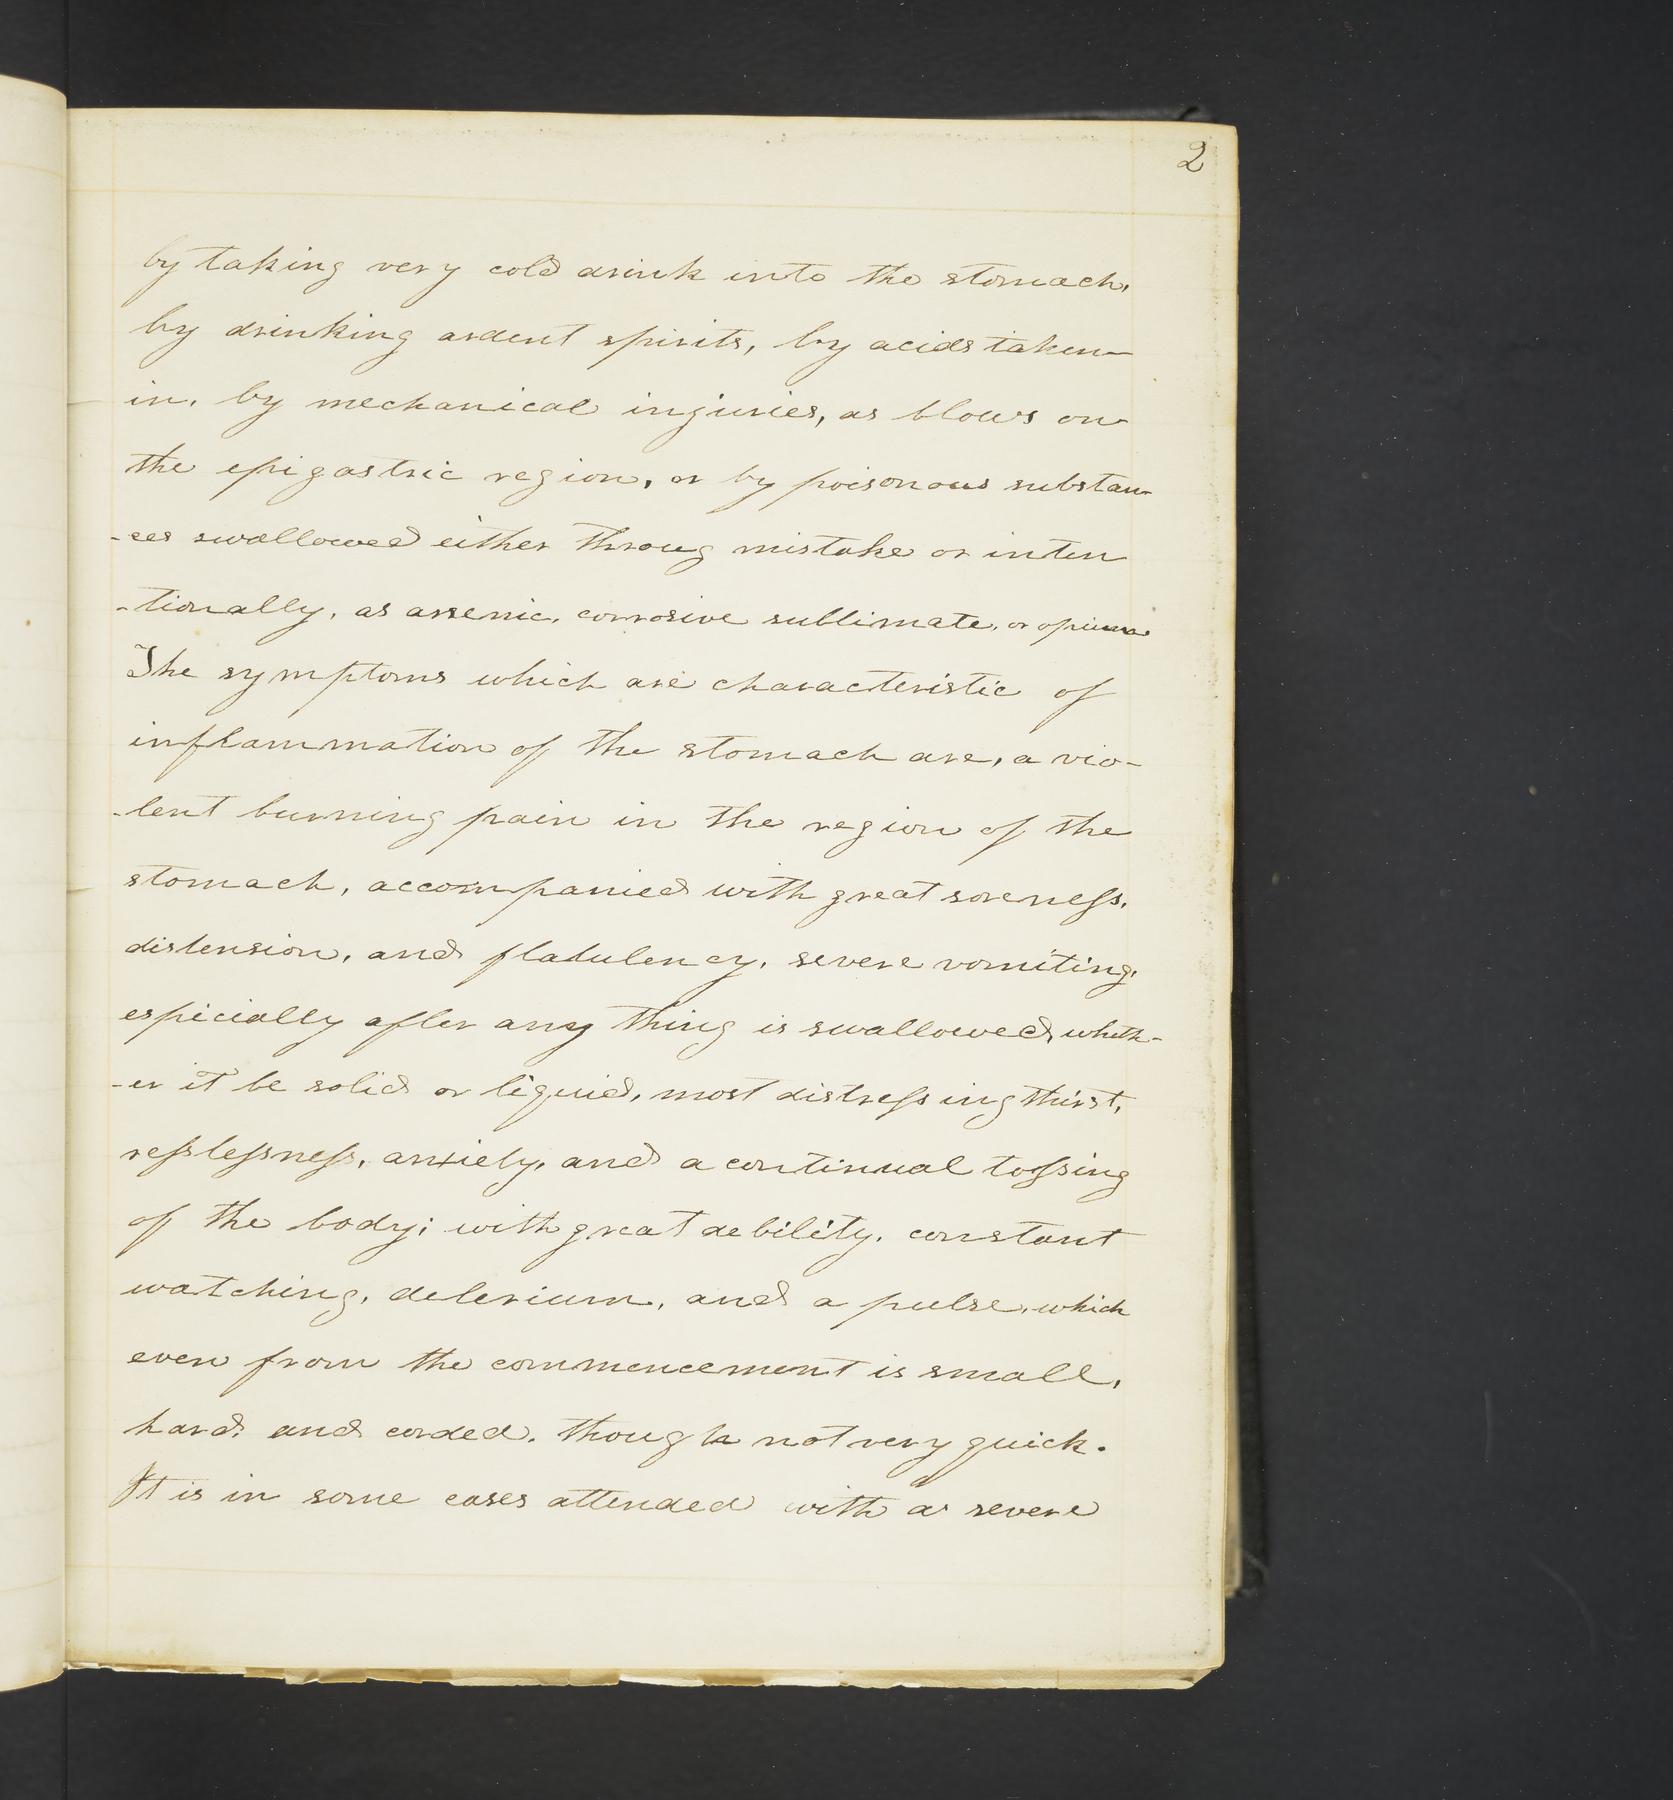 2
by taking very cold drink into the stomach,
by drinking ardent spirits, by acids taken
in, by mechanical injuries, as blows on
the epigastric region, or by poisonous substan
-ces swallowed either throug mistake or inten
-tionally, as arsenic, corrosive sublimate, or opium
The symptoms which are characteristic of
inflammation of the stomach are, a vio-
-lent burning pain in the region of the
stomach, accompanied with great soreness,
distension, and flatulency, severe vomiting,
espicially after any thing is swallowed, wheth-
-er it be solid or liquid, most distressing thirst,
resslessness, anxiety, and a continual tossing
of the body; with great debility, constant
watching, delerium, and a pulse, which
even from the commencement is small,
hard, and corded, though not very quick.
It is in some cases attended with a severe